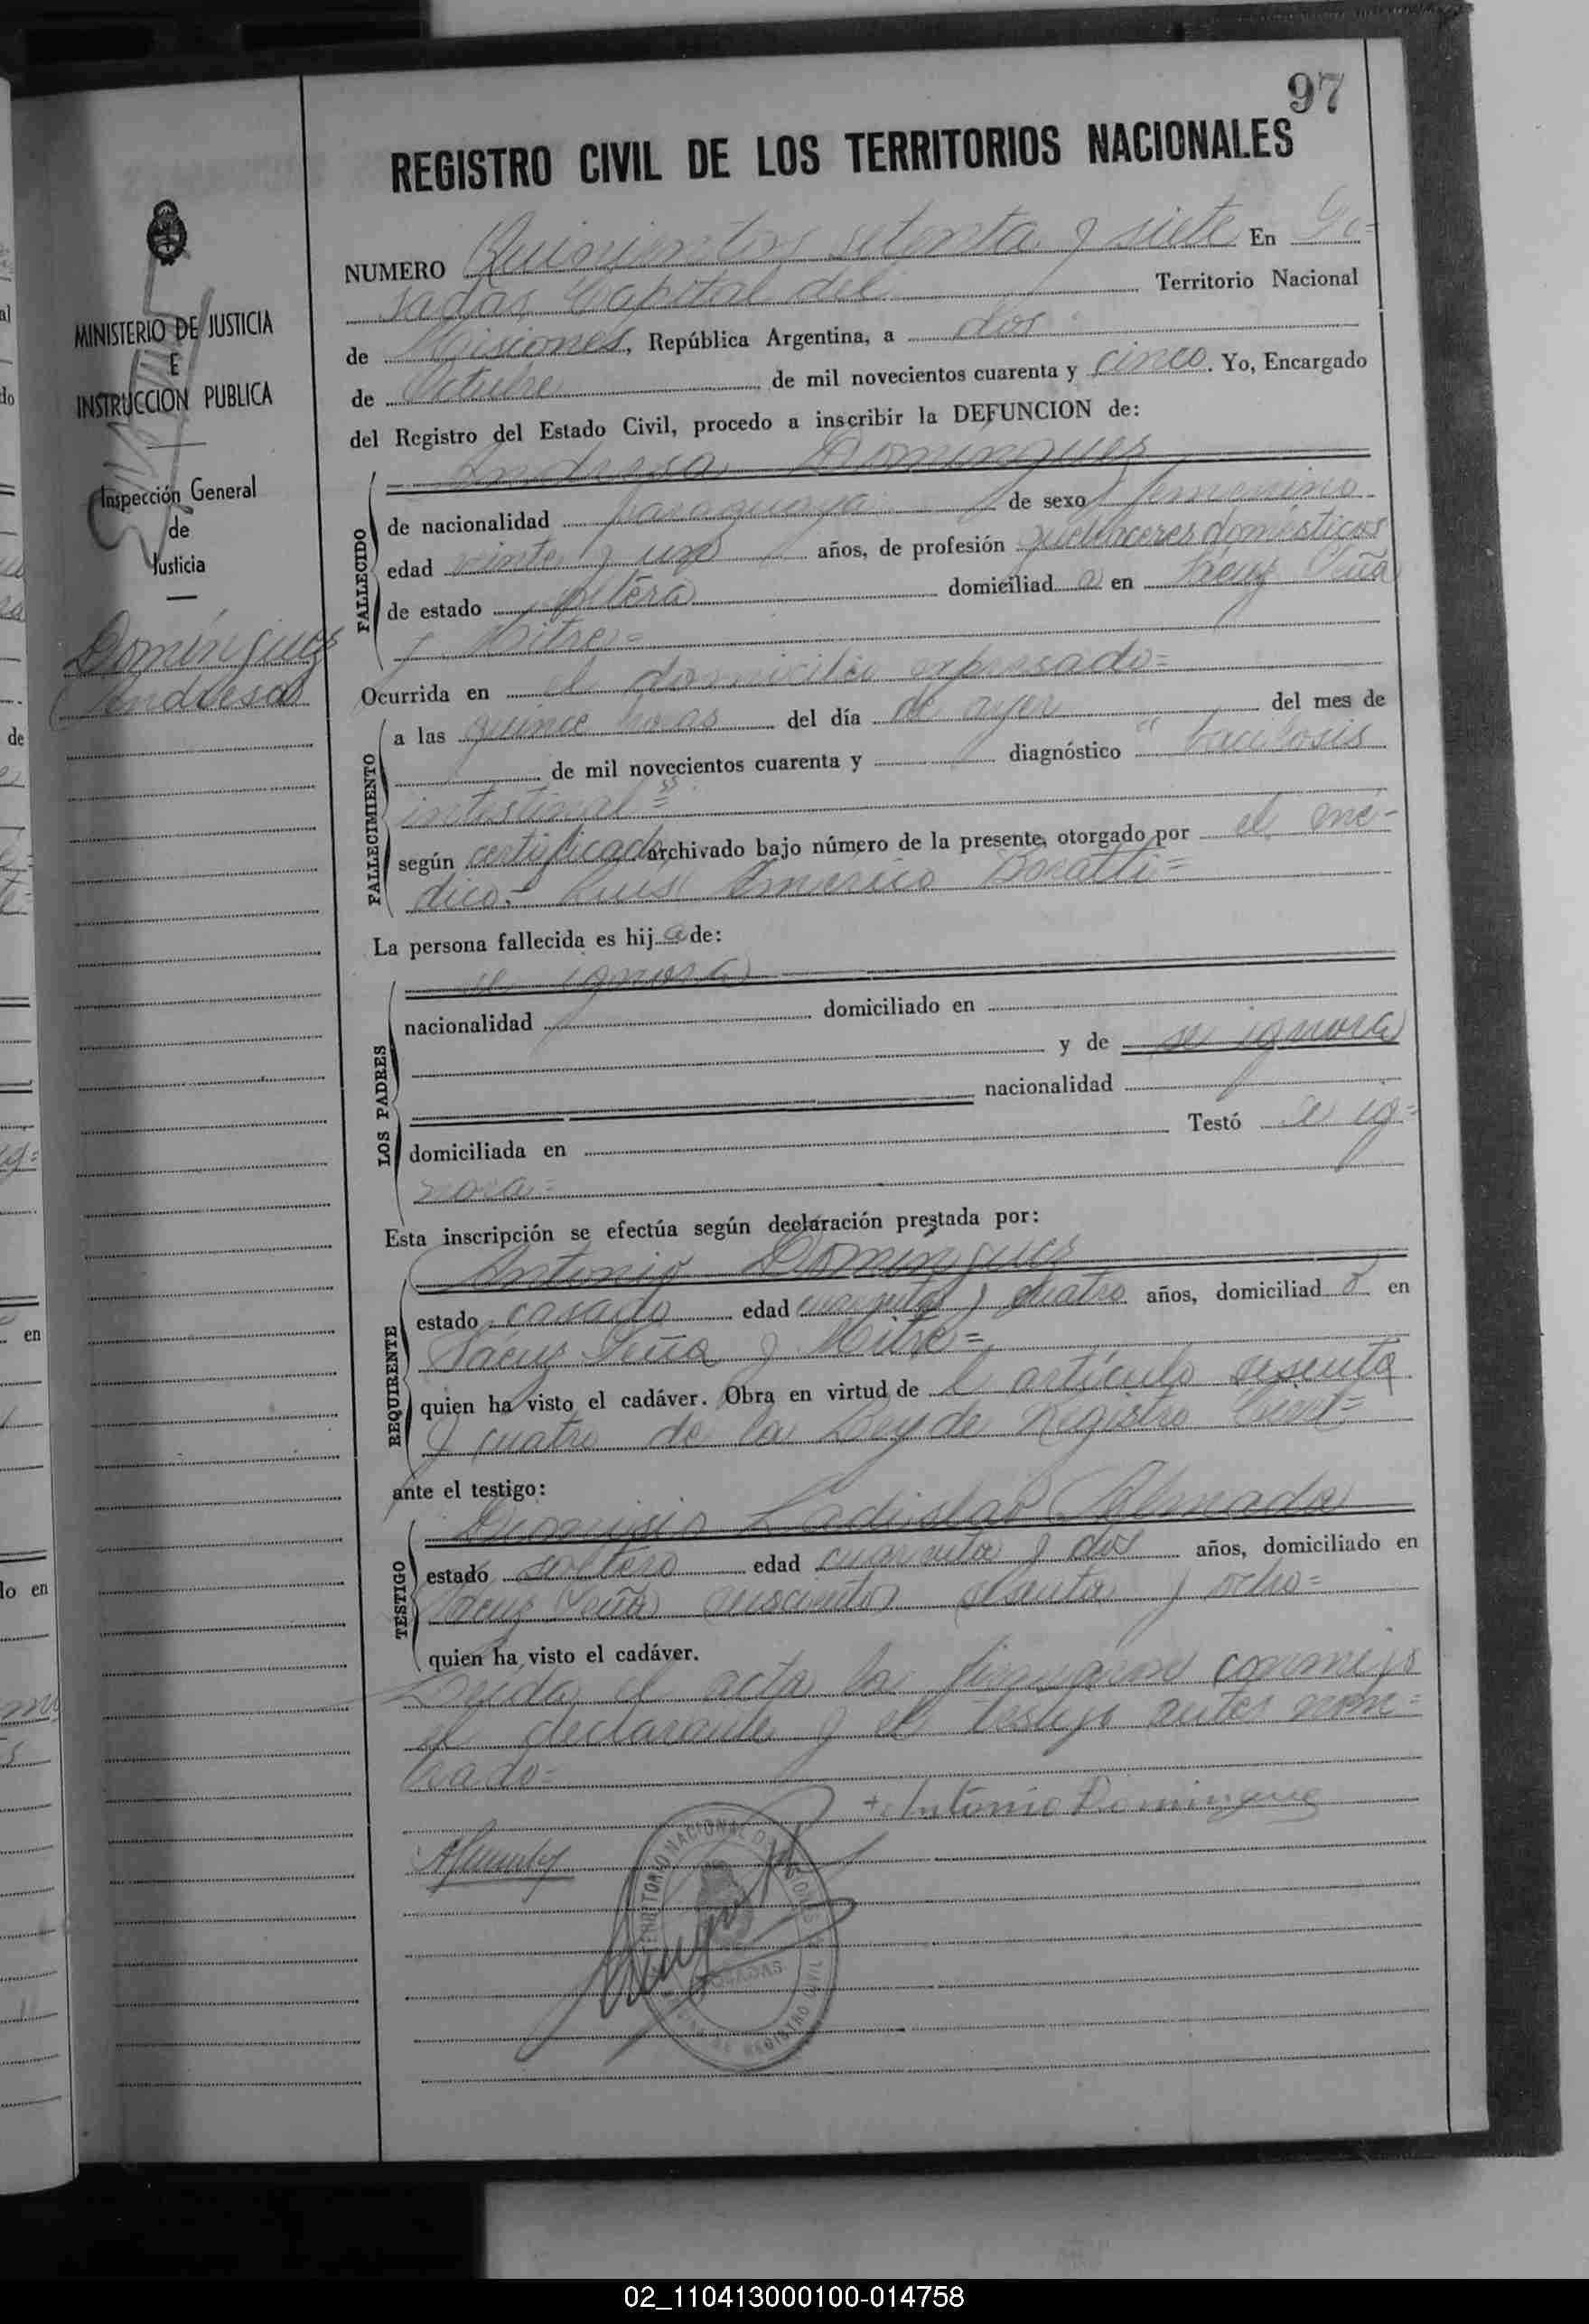 97
REGISTRO CIVIL DE LOS TERRITORIOS NACIONALES
MINISTERIO DE JUSTICIA
E
INSTRUCCION PUBLICA
Inspección General
de
Justicia
Domínguez
Andresa
NUMERO Quinientos setenta y siete En Po-
sadas, Capital del Territorio Nacional
de Misiones, República Argentina, a dos
de Octubre de mil novecientos cuarenta y cinco. Yo, Encargado
del Registro del Estado Civil, procedo a inscribir la DEFUNCION de:
Andresa Domínguez
FALLECIDO
de nacionalidad paraguaya de sexo femenino
edad veinte y un años, de profesión quehaceres domésticos
de estado soltera domiciliad a en Sáenz Peña
y Mitre=
Ocurrida en el domicilio expresado=
FALLECIMIENTO
a las quince horas del día de ayer del mes de
de mil novecientos cuarenta y diagnóstico "bacilosis
intestinal"=
según certificado archivado bajo número de la presente, otorgado por el mé-
dico: Luis Américo
La persona fallecida es hij a de:
LOS PADRES
se ignora
nacionalidad domiciliado en
y de se ignora
nacionalidad
domiciliada en Testó se ig=
nora=
Esta inscripción se efectúa según declaración prestada por:
REQUIRENTE
Antonio Domínguez
estado casado edad cuarenta y cuatro años, domiciliad o en
Sáenz Peña y Mitre=
quien ha visto el cadáver. Obra en virtud de l artículo sesenta
y cuatro de la Ley de Registro Civil=
ante el testigo:
TESTIGO
Dionisio Ladislao Almada
estado soltero edad cuarenta y dos años, domiciliado en
Sáenz Peña y ocho=
quien ha visto el cadáver.
Leida el acta la firmaron conmigo
el declarante y el testigo antes nom=
brado=
Antonio Dominguez
TERRITORIO NACIONAL DE MISIONES
POSADAS
REGISTRO CIVIL
02_110413000100-014758